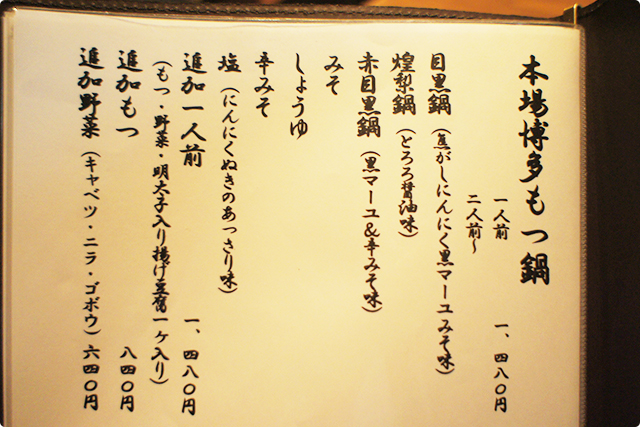 本場博多もつ鍋
一人前　一、四八〇円
二人前～
目黒鍋（焦がしにんにく黒マーユみそ味）
煌梨鍋（とろろ醤油味）
赤目黒鍋（黒マーユ&辛みそ味）
みそ
しょうゆ
辛みそ
塩（にんにくぬきのあっさり味）
追加一人前　一、四八〇円
（もつ・野菜・明太子入り揚げ豆腐一ヶ入り）
追加もつ　八四〇円
追加野菜（キャベツ・ニラ・ゴボウ）六四〇円